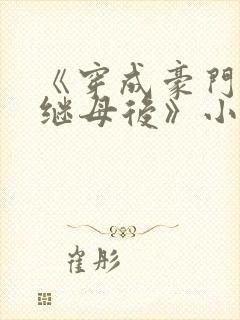 《穿成豪門
继母後》小
崔彤